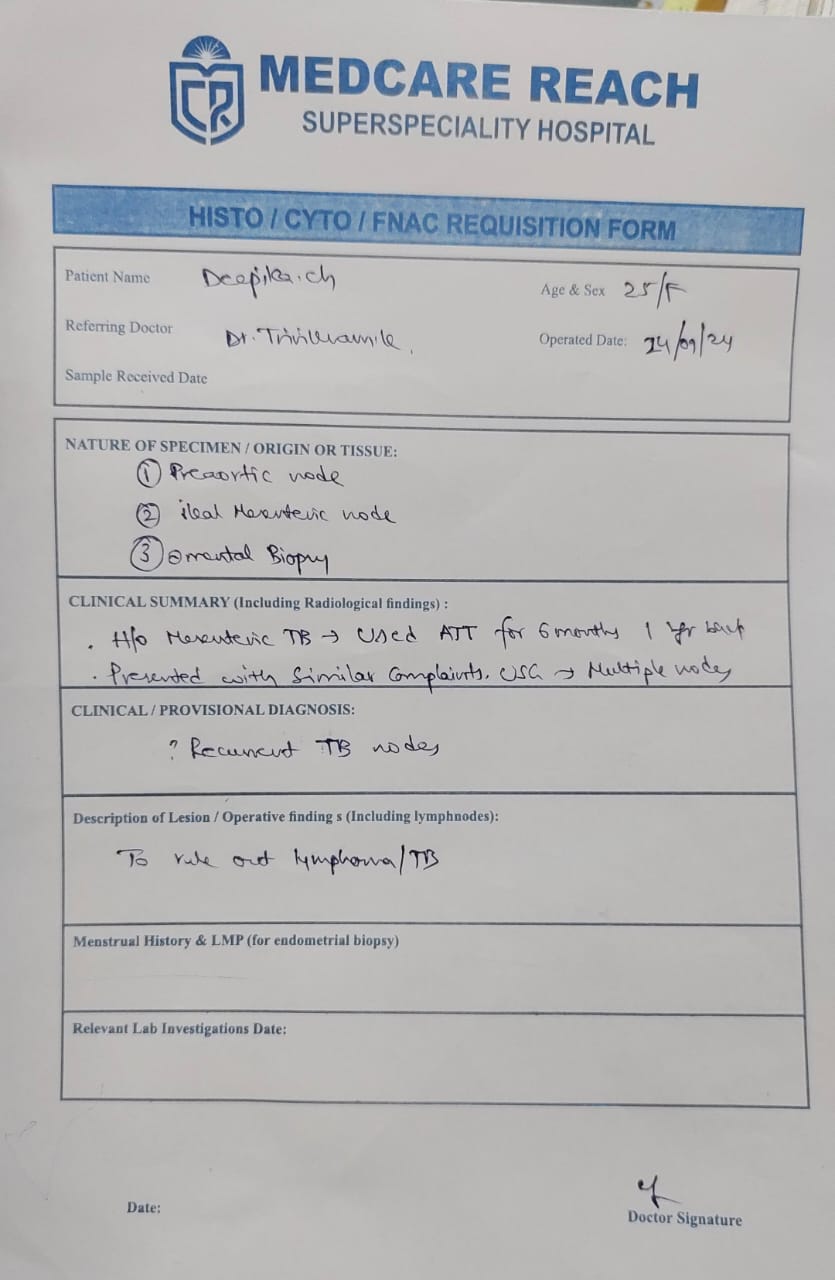 MEDCARE REACH
SUPERSPECIALITY HOSPITAL
HISTO / CYTO / FNAC REQUISITION FORM
Patient Name Deepika.ch
Age & Sex 25/F
Referring Doctor Dr.
Operated Date: 24/09/24
Sample Received Date
NATURE OF SPECIMEN / ORIGIN OR TISSUE:
① Preaortic node
② ileal Mesenteric node
③ omental Biopsy
CLINICAL SUMMARY (Including Radiological findings) :
. H/o Mesenteric TB → Used ATT for 6 months 1 yr back
. Presented with Similar Complaints. USG → Multiple nodes
CLINICAL / PROVISIONAL DIAGNOSIS:
? Recurrent TB nodes
Description of Lesion / Operative finding s (Including lymphnodes):
To rule out lymphoma/TB
Menstrual History & LMP (for endometrial biopsy)
Relevant Lab Investigations Date:
Date:
Doctor Signature